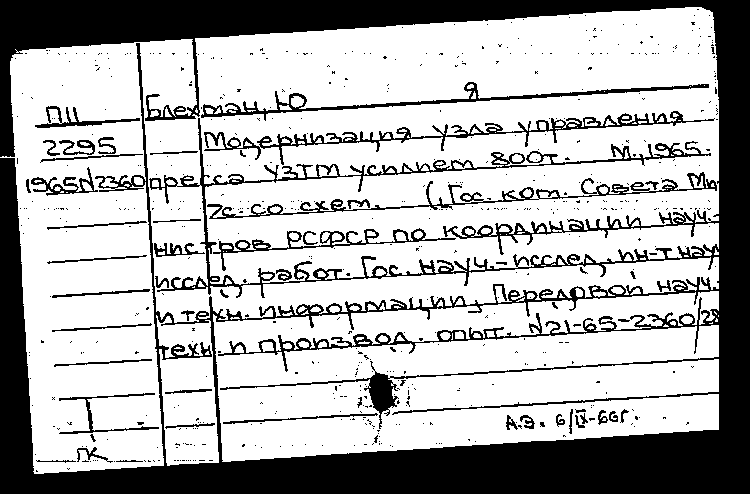 я
П11 Блехман, Ю
2295 Модернизация узла управления
1965N2360 пресса УЗТМ усилием 800т. М., 1965.
7с. со схем. (Гос. ком. Совета Ми-
нистров РСФСР по координации науч.-
исслед. работ. Гос. науч.-исслед. ин-т науч
и техн. информации. Передовой науч.-
техн. и производ. опыт. N21-65-2360/28
ГК
А.Э. 6/IX-66г.